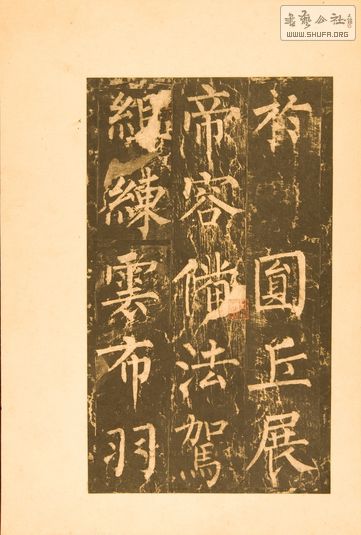 書藝公社
WWW.SHUFA.ORG
於圓丘展
帝容備法駕
組練雲布羽